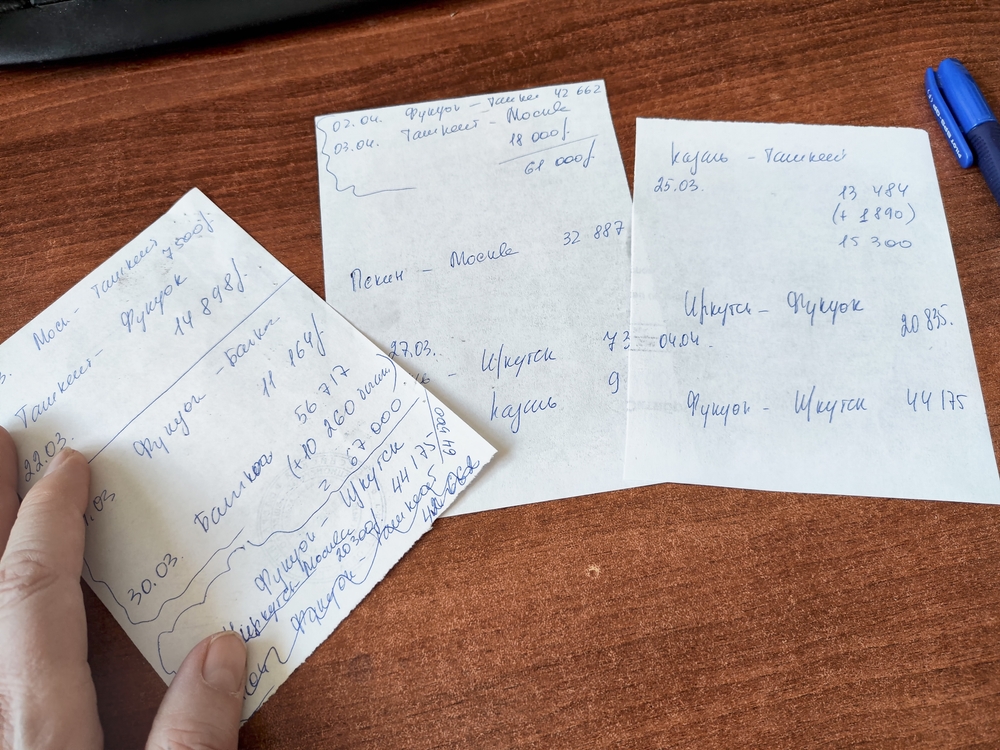 Моск. - Ташкент
7500р.
22.03. Ташкент - Фукуок
14 898р.
Фукуок - Бангкок
11 164р
30.03. Бангкок 56 717
(+10 260
67 000
Фукуок - Иркутск
44 175
Иркутск - Москва
20300р.
64 400
Фукуок - Ташкент
02.04. Фукуок - Ташкент 42 662
03.04. Ташкент - Москва
18 000р.
61 000р.
Пекин - Москва 32 887
27.03. - Иркутск 73
Казань 9
Казань - Ташкент
25.03. 13 484
(+ 1890)
15 300
Иркутск - Фукуок
04.04. 20 835.
Фукуок - Иркутск 44 175
PILOT